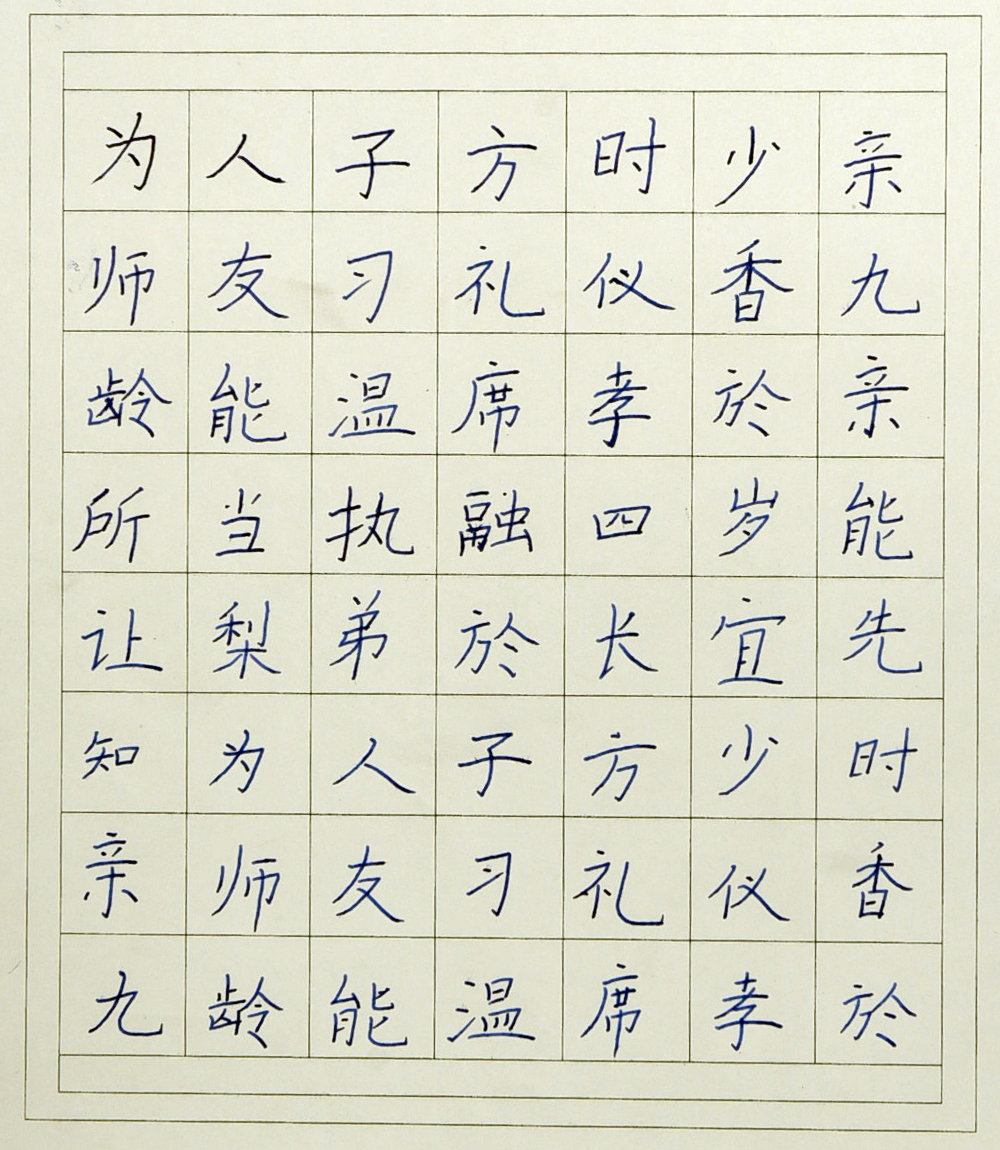 为人子方时少亲
师友习礼仪香九
龄能温席孝於亲
所当执融四岁能
让梨弟於长宜先
知为人子方少时
亲师友习礼仪香
九龄能温席孝於